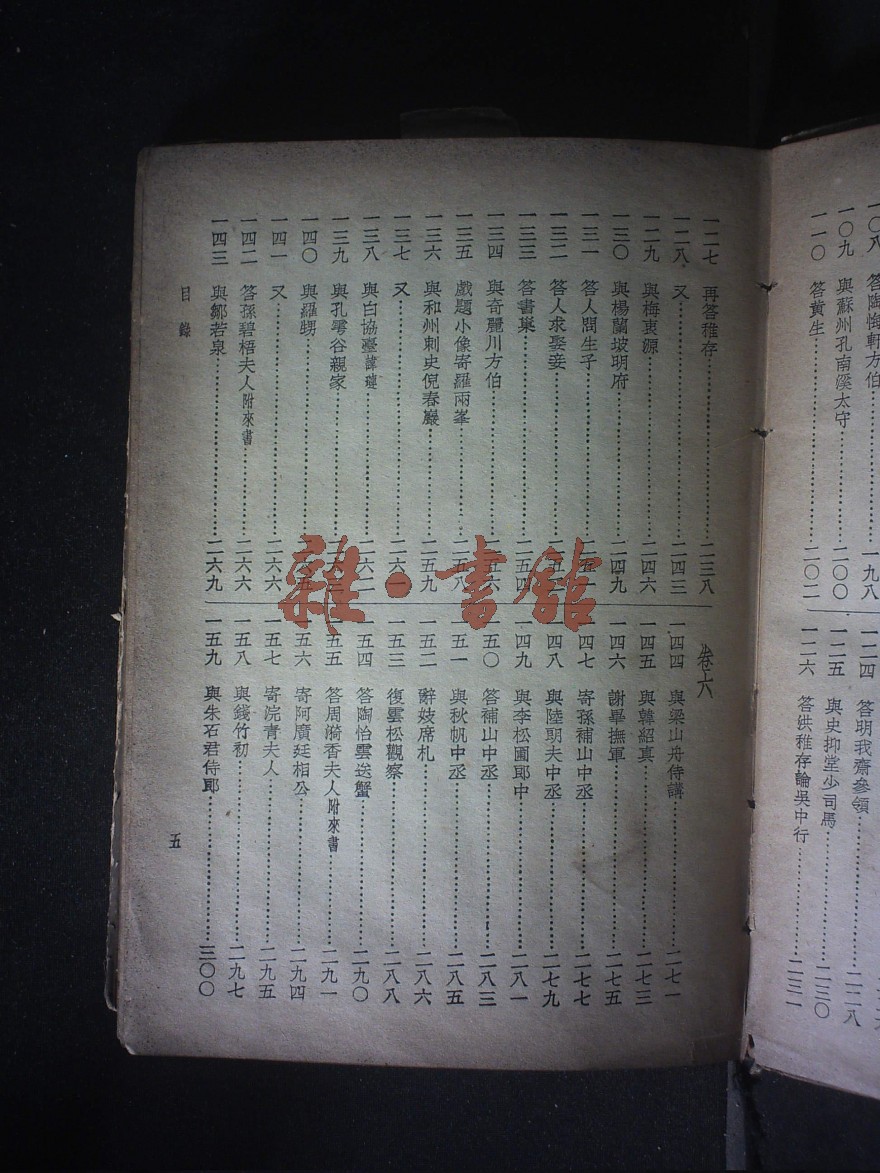 一〇八　答陶悔軒方伯……一九八
一〇九　與蘇州孔南溪太守……二〇〇
一一〇　答黄生……二〇二
一二四　答明我齋參領……二二八
一二五　與史抑堂少司馬……二三〇
一二六　答洪稚存論吳中行……二三一
一二七　再答稚存……二三八
一二八　又……二四三
一二九　與梅衷源……二四六
一三〇　與楊蘭坡明府……二四九
一三一　答人問生子……二五一
一三二　答人求娶妾……
一三三　答書巢……二五四
一三四　與奇麗川方伯……二五六
一三五　戲題小像寄羅兩峯……二五八
一三六　與和州刺史倪春巖……二五九
一三七　又……二六一
一三八　與白協臺諱璉……二六二
一三九　與孔雩谷親家……
一四〇　與羅甥……
一四一　又……二六六
一四二　答孫碧梧夫人附來書……二六六
一四三　與鄒若泉……二六九
卷六
一四四　與梁山舟侍講……二七一
一四五　與韓紹真……二七三
一四六　謝畢撫軍……二七五
一四七　寄孫補山中丞……二七七
一四八　與陸朗夫中丞……二七九
一四九　與李松圃郎中……二八一
一五〇　答補山中丞……二八三
一五一　與秋帆中丞……二八五
一五二　辭妓席札……二八六
一五三　復雲松觀察……二八八
一五四　答陶怡雲送蟹……二九〇
一五五　答周漪香夫人附來書……二九一
一五六　寄阿廣廷相公……二九四
一五七　寄浣青夫人……二九五
一五八　與錢竹初……二九七
一五九　與朱石君侍郎……三〇〇
目錄
五
雜·書館